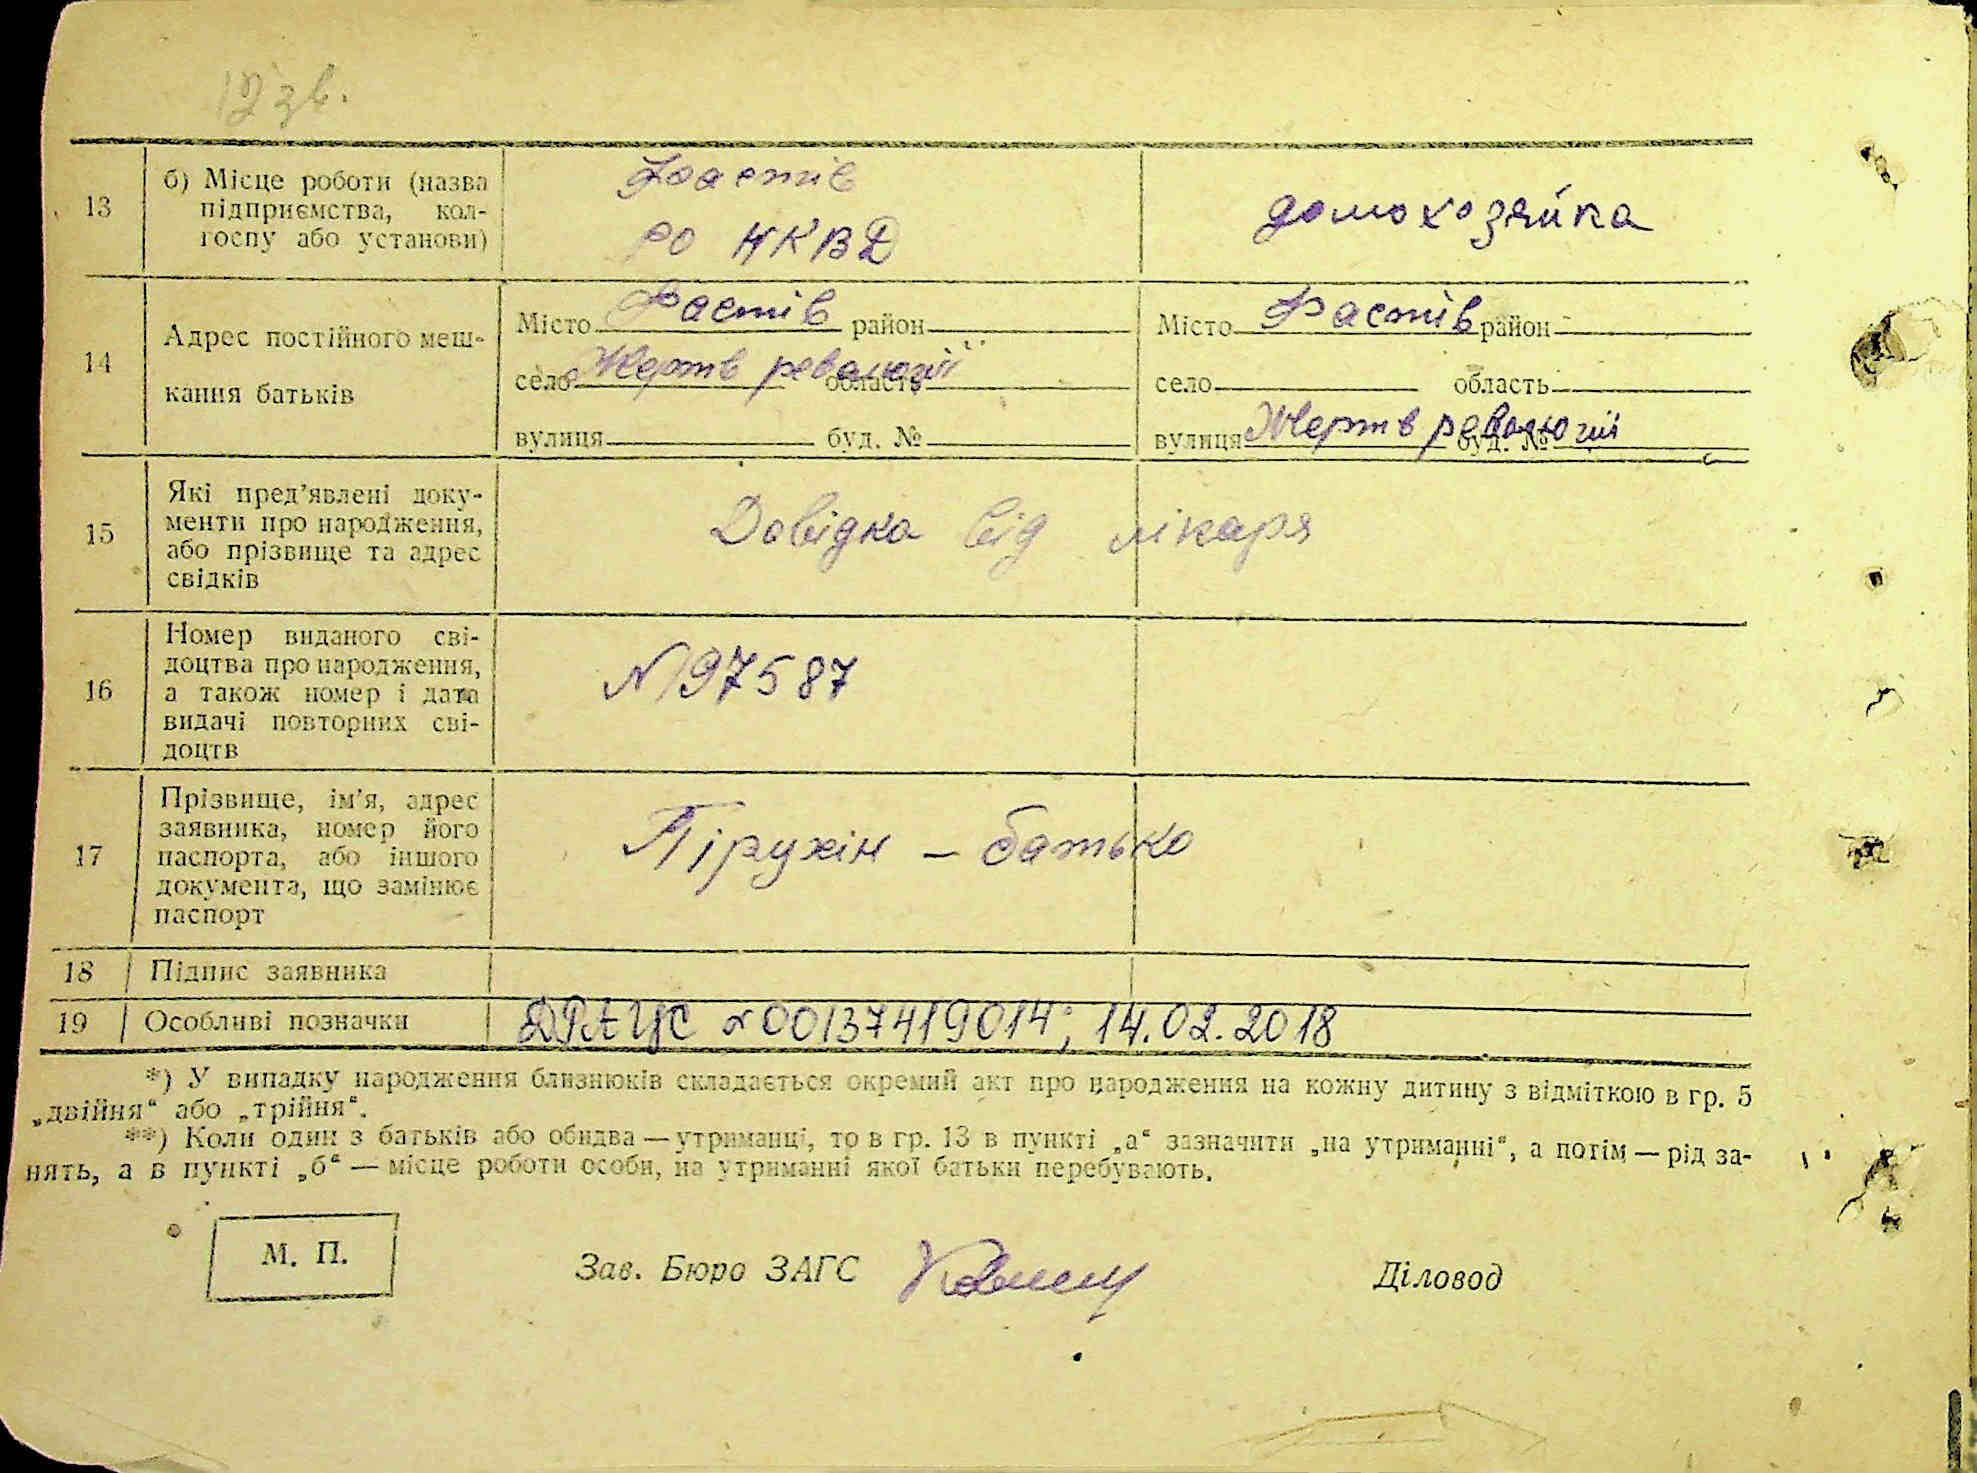 12 зв.
13
б) Місце роботи (назва
підприємства, кол-
госпу або установи)
Фастів
РО НКВД
домохозяйка
14
Адрес постійного меш-
кання батьків
Місто Фастів район
село Жертв революції область
вулиця буд. №
Місто Фастів район
село область
вулиця Жертв революції буд. №
15
Які пред’явлені доку-
менти про народження,
або прізвище та адрес
свідків
Довідка від лікаря
16
Номер виданого сві-
доцтва про народження,
а також номер і дата
видачі повторних сві-
доцтв
N 97587
17
Прізвище, ім’я, адрес
заявника, номер його
паспорта, або іншого
документа, що замінює
паспорт
Пірухін – батько
18 Підпис заявника
19 Особливі позначки
ДРАЦС №00137419014; 14.02.2018
*) У випадку народження близнюків складається окремий акт про народження на кожну дитину з відміткою в гр. 5
„двійня“ або „трійня“.
**) Коли один з батьків або обидва — утриманці, то в гр. 13 в пункті „а“ зазначити „на утриманні“, а потім — рід за-
нять, а в пункті „б“ — місце роботи особи, на утриманні якої батьки перебувають.
М. П.
Зав. Бюро ЗАГС
Діловод